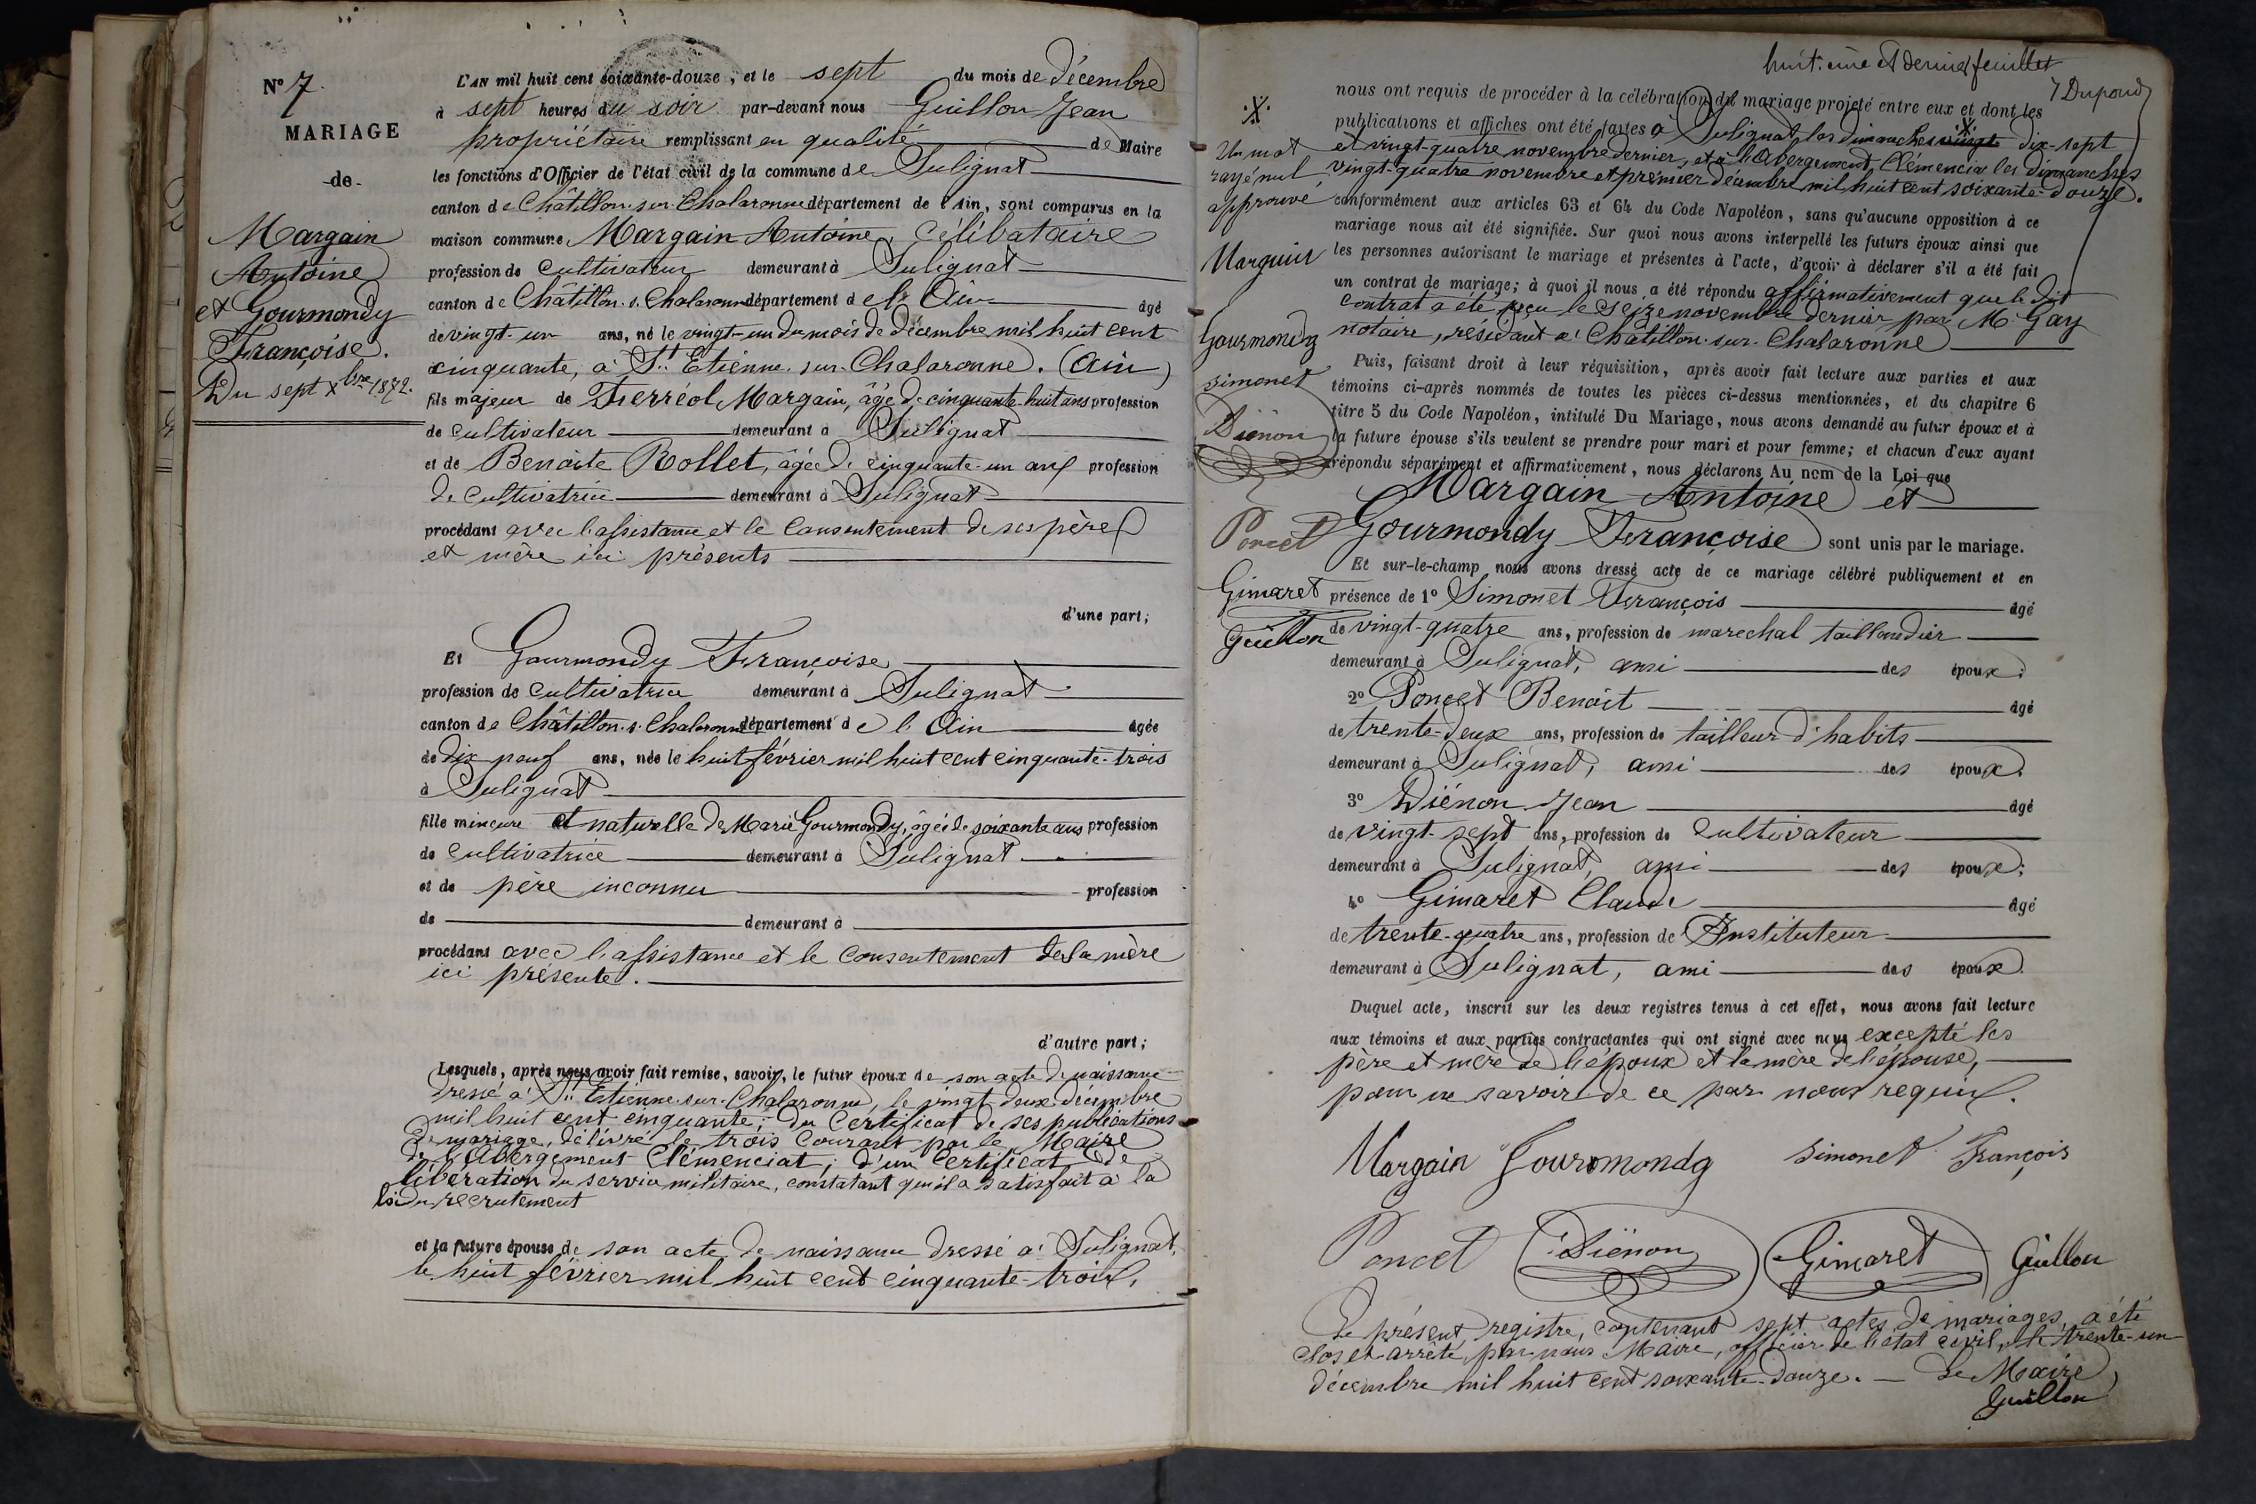 N° 7.
MARIAGE
-de-
Margain
Antoine
et Gourmondy
Françoise.
Du sept Xbre 1872.
L'AN mil huit cent soixante-douze, et le sept du mois de Décembre
à sept heures du soir par-devant nous Guillon Jean
propriétaire remplissant en qualité de Maire
les fonctions d'Officier de l'état civil de la commune de Sulignat
canton de Châtillon-sur-Chalaronne département de l'Ain, sont comparus en la
maison commune Margain Antoine, célibataire
profession de cultivateur demeurant à Sulignat
canton de Châtillon-s-Chalaronne département de l'Ain âgé
de vingt-un ans, né le vingt-un du mois de décembre mil huit cent
cinquante, à St Etienne-sur-Chalaronne. (Ain)
fils majeur de Ferréol Margain, âgé de cinquante-huit ans profession
de cultivateur demeurant à Sulignat
et de Benoite Rollet, âgée de cinquante-un ans profession
de cultivatrice demeurant à Sulignat
procédant avec l'assistance et le consentement de ses père
et mère ici présents
d'une part;
Et Gourmondy Françoise
profession de cultivatrice demeurant à Sulignat
canton de Châtillon-s-Chalaronne département de l'Ain âgée
de dix neuf ans, née le huit février mil huit cent cinquante-trois
à Sulignat
fille mineure et naturelle de Marie Gourmondy, âgée de soixante ans profession
de cultivatrice demeurant à Sulignat
et de père inconnu profession
de demeurant à
procédant avec l'assistance et le consentement de sa mère
ici présente.
d'autre part;
Lesquels, après nous avoir fait remise, savoir, le futur époux de son acte de naissance
dressé à St Etienne-sur-Chalaronne, le vingt deux décembre
mil huit cent cinquante; du certificat de ses publications
de mariage, délivré le trois courant par le Maire
de l'Abergement Clémenciat; d'un certificat de
libération du service militaire, constatant qu'il a satisfait à la
loi du recrutement
et la future épouse de son acte de naissance dressé à Sulignat,
le huit février mil huit cent cinquante-trois.
huitième et dernier feuillet
7 Dupond
nous ont requis de procéder à la célébration du mariage projeté entre eux et dont les
publications et affiches ont été faites à Sulignat, les dimanches vingt X dix-sept
et vingt-quatre novembre dernier, et à l'Abergement Clémenciat les dimanches
vingt-quatre novembre et premier décembre mil huit cent soixante-douze.
conformément aux articles 63 et 64 du Code Napoléon, sans qu'aucune opposition à ce
mariage nous ait été signifiée. Sur quoi nous avons interpellé les futurs époux ainsi que
les personnes autorisant le mariage et présentes à l'acte, d'avoir à déclarer s'il a été fait
un contrat de mariage; à quoi il nous a été répondu affirmativement que le dit
contrat a été reçu le seize novembre dernier par Me Gay
notaire, résidant à Châtillon-sur-Chalaronne
Puis, faisant droit à leur réquisition, après avoir fait lecture aux parties et aux
témoins ci-après nommés de toutes les pièces ci-dessus mentionnées, et du chapitre 6
titre 5 du Code Napoléon, intitulé Du Mariage, nous avons demandé au futur époux et à
la future épouse s'ils veulent se prendre pour mari et pour femme; et chacun d'eux ayant
répondu séparément et affirmativement, nous déclarons Au nom de la Loi que
Margain Antoine et
Gourmondy Françoise sont unis par le mariage.
Et sur-le-champ nous avons dressé acte de ce mariage célébré publiquement et en
présence de 1° Simonet François âgé
de vingt-quatre ans, profession de marechal taillandier
demeurant à Sulignat, ami des époux;
2° Poncet Benoit âgé
de trente-deux ans, profession de tailleur d'habits
demeurant à Sulignat, ami des époux;
3° Diénon Jean âgé
de vingt-sept ans, profession de cultivateur
demeurant à Sulignat, ami des époux;
4° Gimaret Claude âgé
de trente-quatre ans, profession de Instituteur
demeurant à Sulignat, ami des époux.
Duquel acte, inscrit sur les deux registres tenus à cet effet, nous avons fait lecture
aux témoins et aux parties contractantes qui ont signé avec nous excepté les
père et mère de l'époux et la mère de l'épouse,
pour ne savoir de ce par nous requis.
Margain Gourmondy Simonet François
Poncet Diénon Gimaret Guillon
Le présent registre, contenant sept actes de mariages, a été
clos et arrêté par nous Maire, officier de l'état civil, le trente-un
décembre mil huit cent soixante-douze. — Le Maire
Guillon
.X.
Un mot
rayé nul
approuvé
Margain
Gourmondy
Simonet
Diénon
Poncet
Gimaret
Guillon